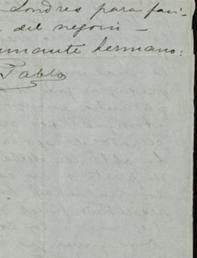 Londres para faci-
del negocio —
amante hermano:
Pablo